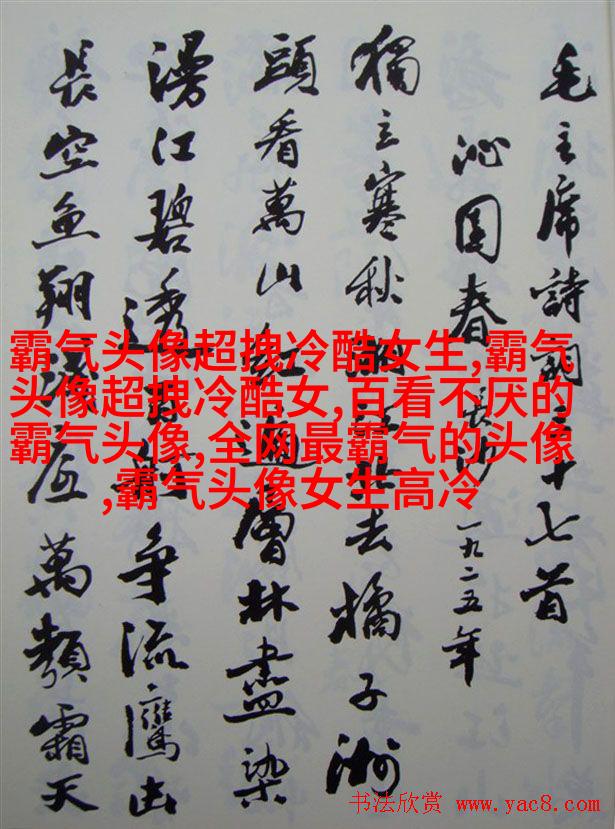 毛主席詩詞三十七首
沁園春 長沙 一九二五年
獨立寒秋湘江北去橘子洲
頭看萬山紅遍層林盡染
漫江碧透百舸争流鷹击
長空魚翔淺底萬類霜天
霸气头像超拽冷酷女生,霸气
头像超拽冷酷女,百看不厌的
霸气头像,全网最霸气的头像
,霸气头像女生高冷
书法欣赏 www.yac8.com